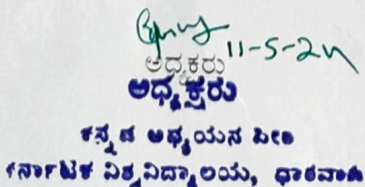 11-5-24
ಅಧ್ಯಕ್ಷರು
ಅಧ್ಯಕ್ಷರು
ಕನ್ನಡ ಅಧ್ಯಯನ ಪೀಠ
ಕರ್ನಾಟಕ ವಿಶ್ವವಿದ್ಯಾಲಯ, ಧಾರವಾಡ